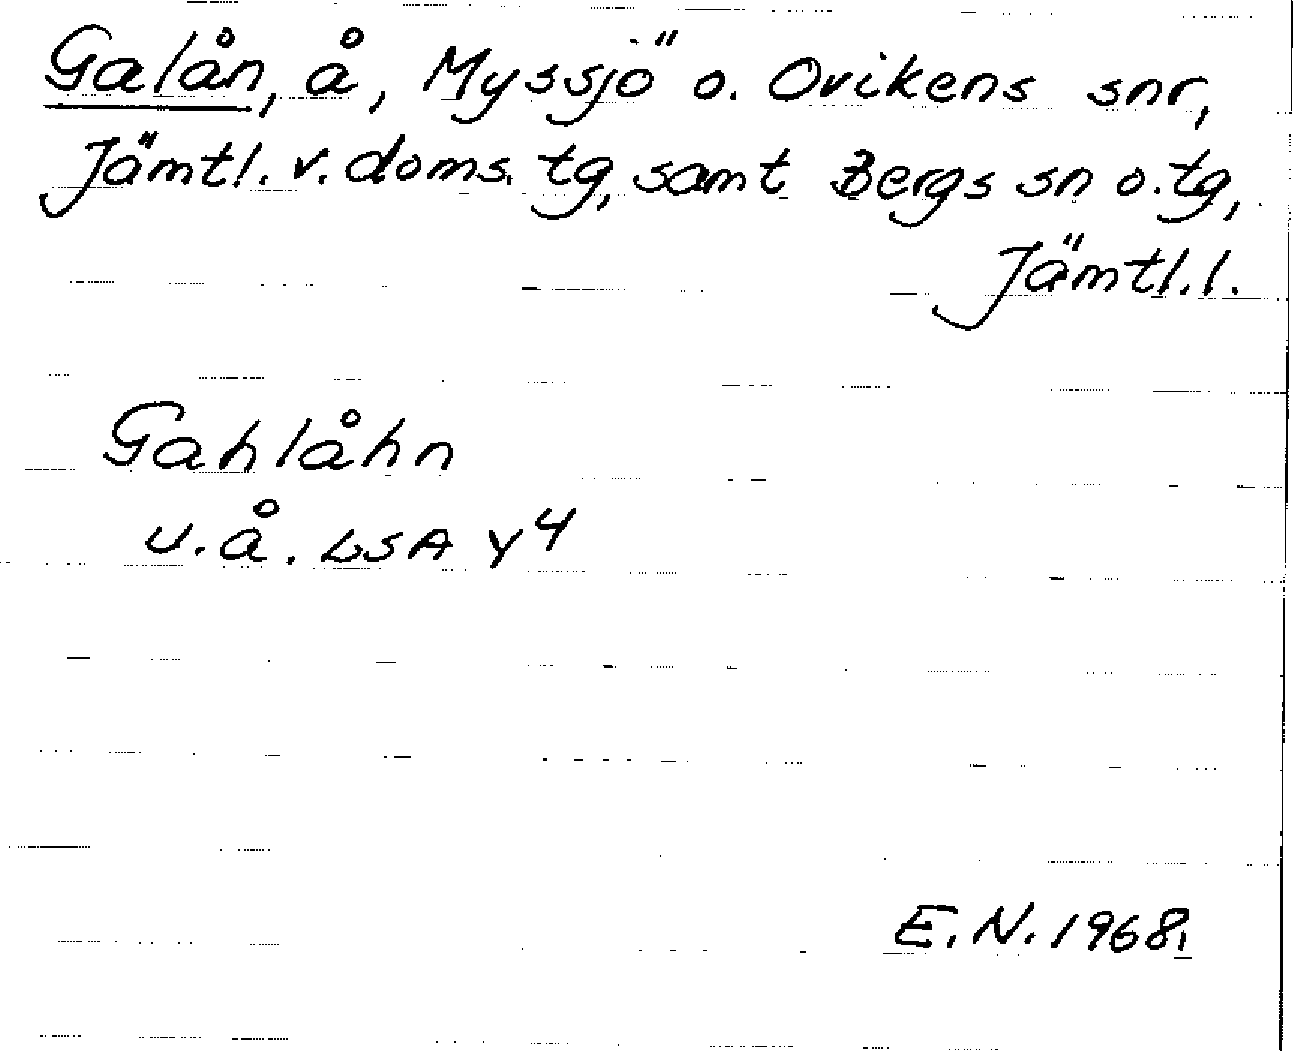 Galån, å, Myssjö o. Ovikens snr,
Jämtl. v. doms. tg, samt Bergs sn o. tg,
Jämtl. l.
Gahlåhn
u. å. LSA Y4
E. N. 1968.